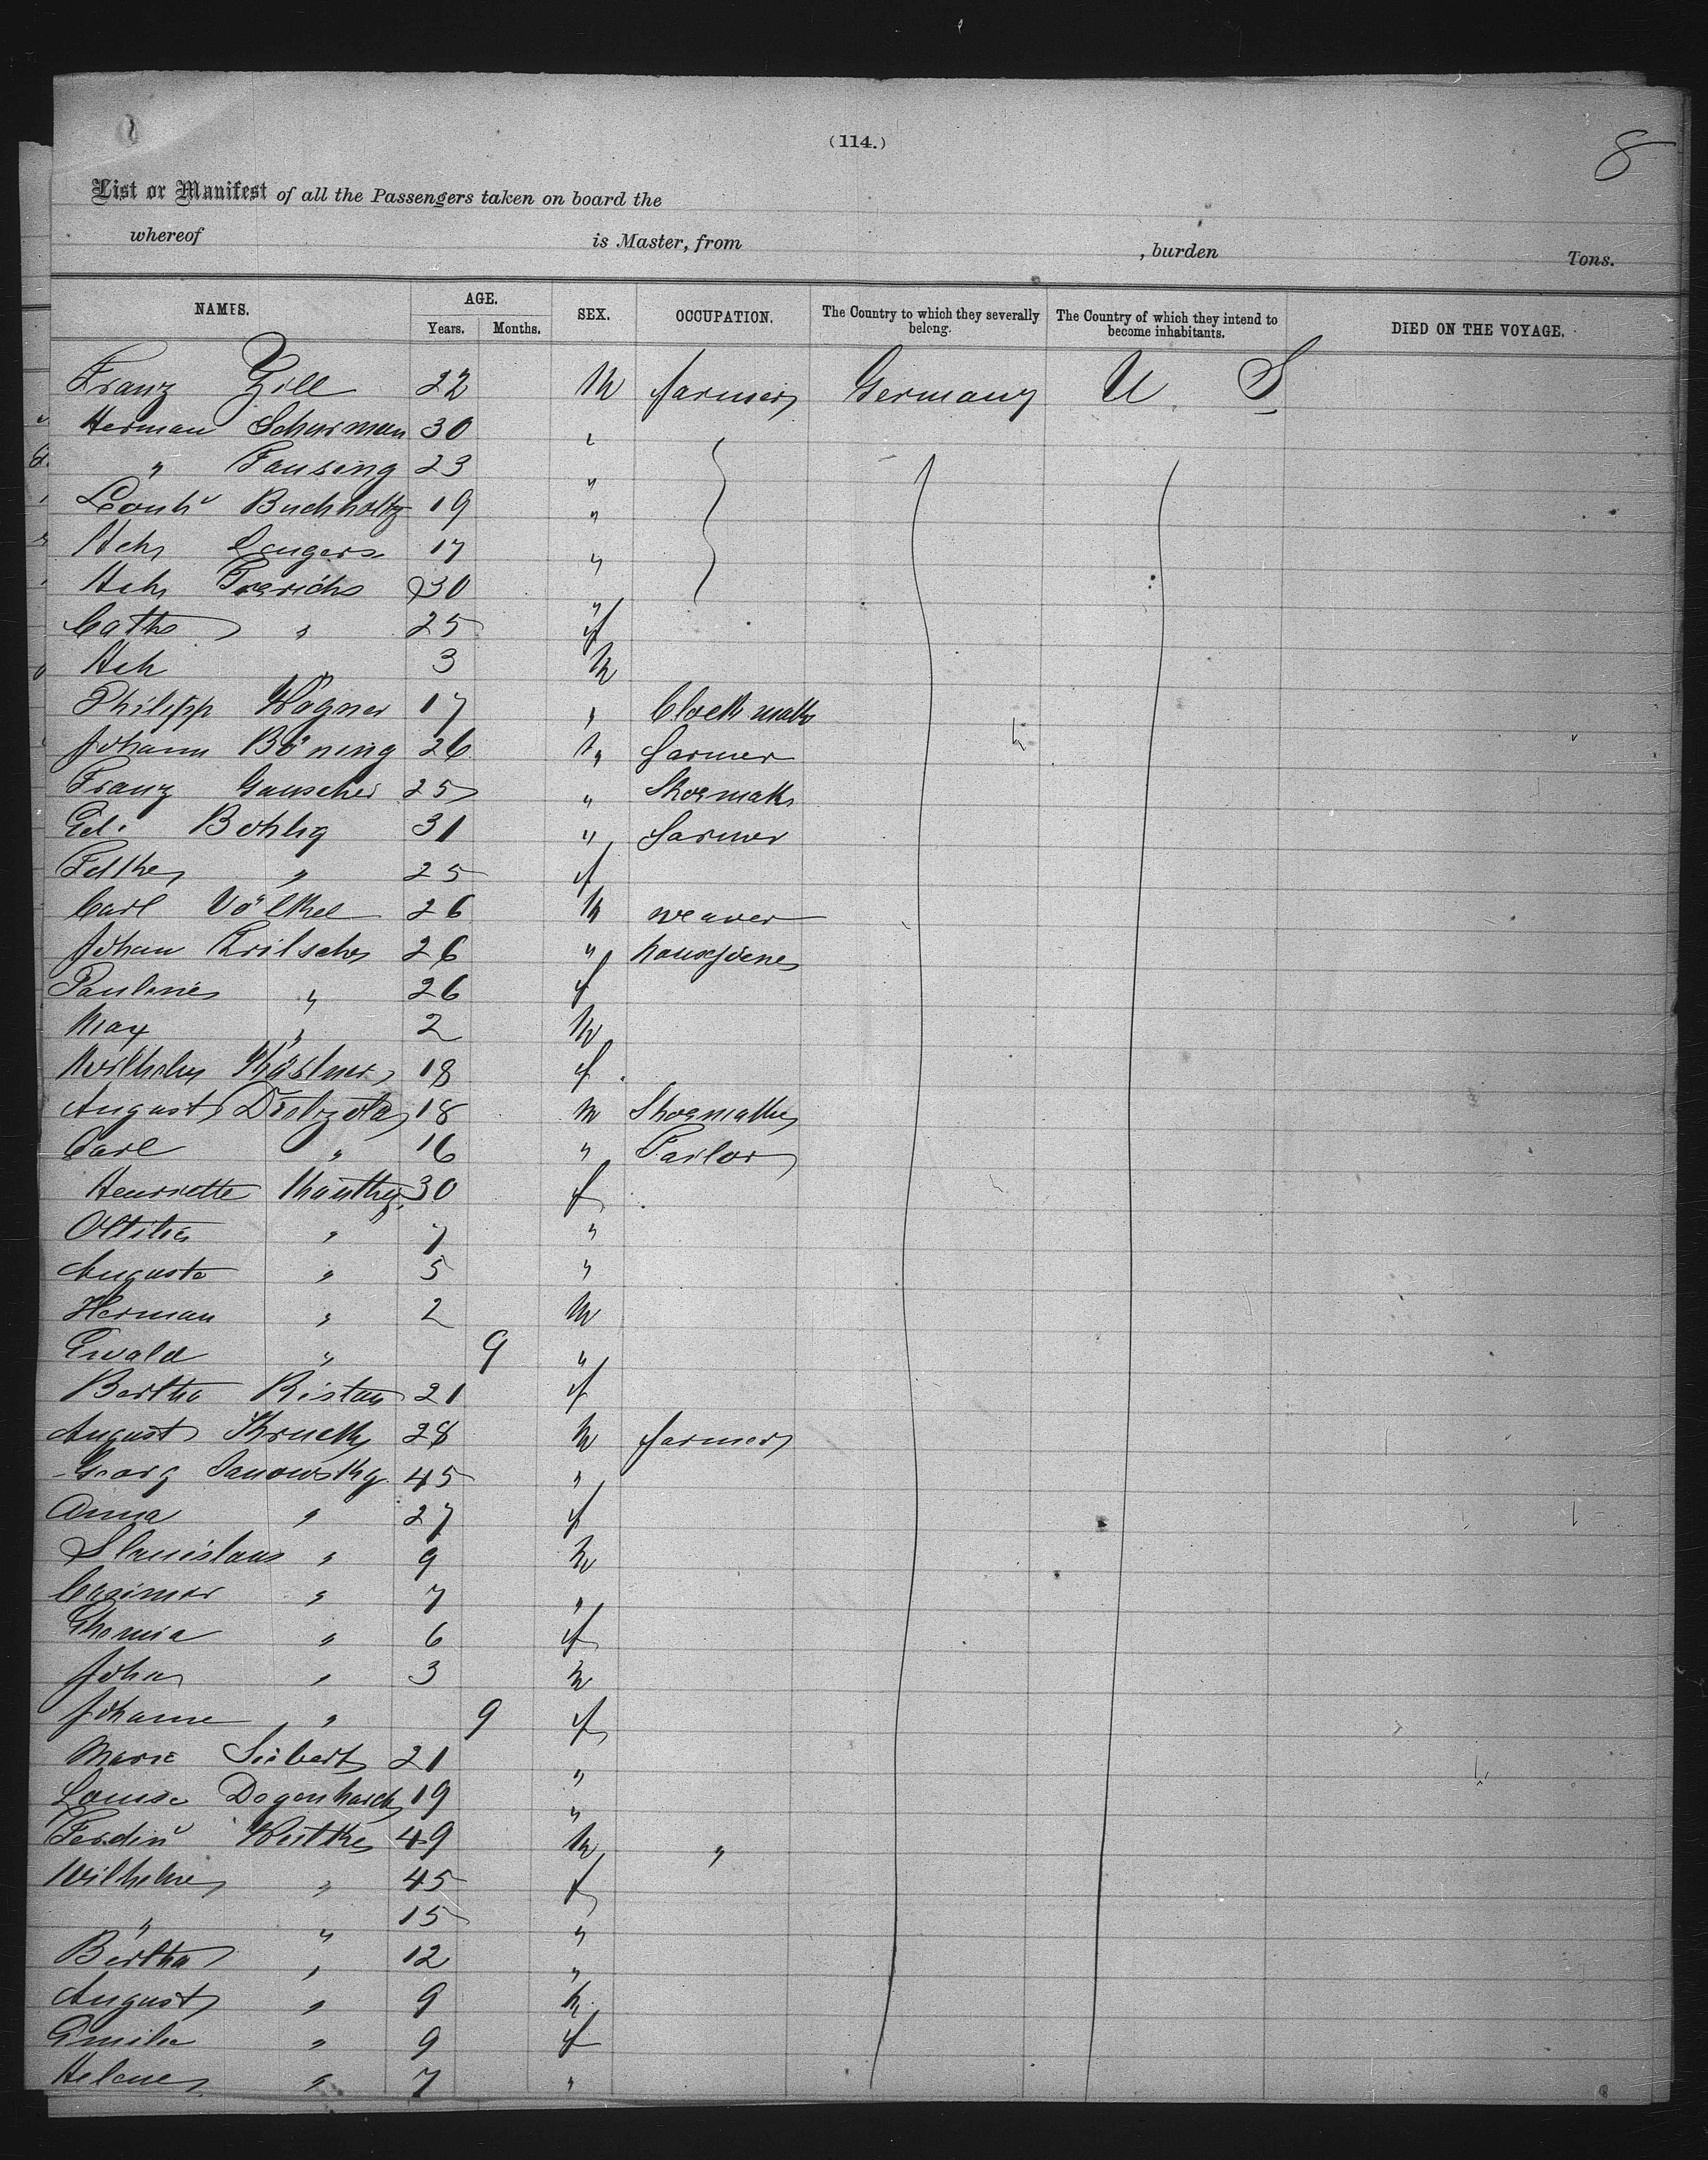 (114.)
8
List or Manifest of all the Passengers taken on board the
whereof is Master, from , burden Tons.
NAMES. AGE. SEX. OCCUPATION. The Country to which they severally belong. The Country of which they intend to become inhabitants. DIED ON THE VOYAGE.
Years. Months.
Franz Zill 22 M farmer Germany U S
Herman Schurman 30 "
" Fausing 23 "
Buchholtz 19 "
Hch 17 "
Hch Frerichs 30 "
Cath " 25 f
Hch " 3 M
Philipp Wagner 17 " Clockmakr
Johann Böning 26 " farmer
Franz Gauscher 25 " Shoemakr
Ed. Bohlig 31 " farmer
" 25 f
Carl Völkel 26 M weaver
Johan 26 "
Pauline " 26 f
Max " 2 M
Wilhelm 18 f
August 18 M Shoemaker
Carl " 16 " Tailor
Henriette 30 f
Ottilie " 7 "
Auguste " 5 "
Herman " 2 M
Ewald " 9 "
Bertha Ristau 21 f
August 28 M farmer
Georg Janowsky 45 "
Anna " 27 f
Stanislaus " 9 M
Casimer " 7 "
" 6 f
Johan " 3 M
Johanne " 9 f
Marie Siebert 21 "
Louise Degenhardt 19 "
Ferdin 49 M "
Wilhelme " 45 f
" " 15 "
Bertha " 12 "
August " 9 M
Emilie " 9 f
Helene " 7 "
8